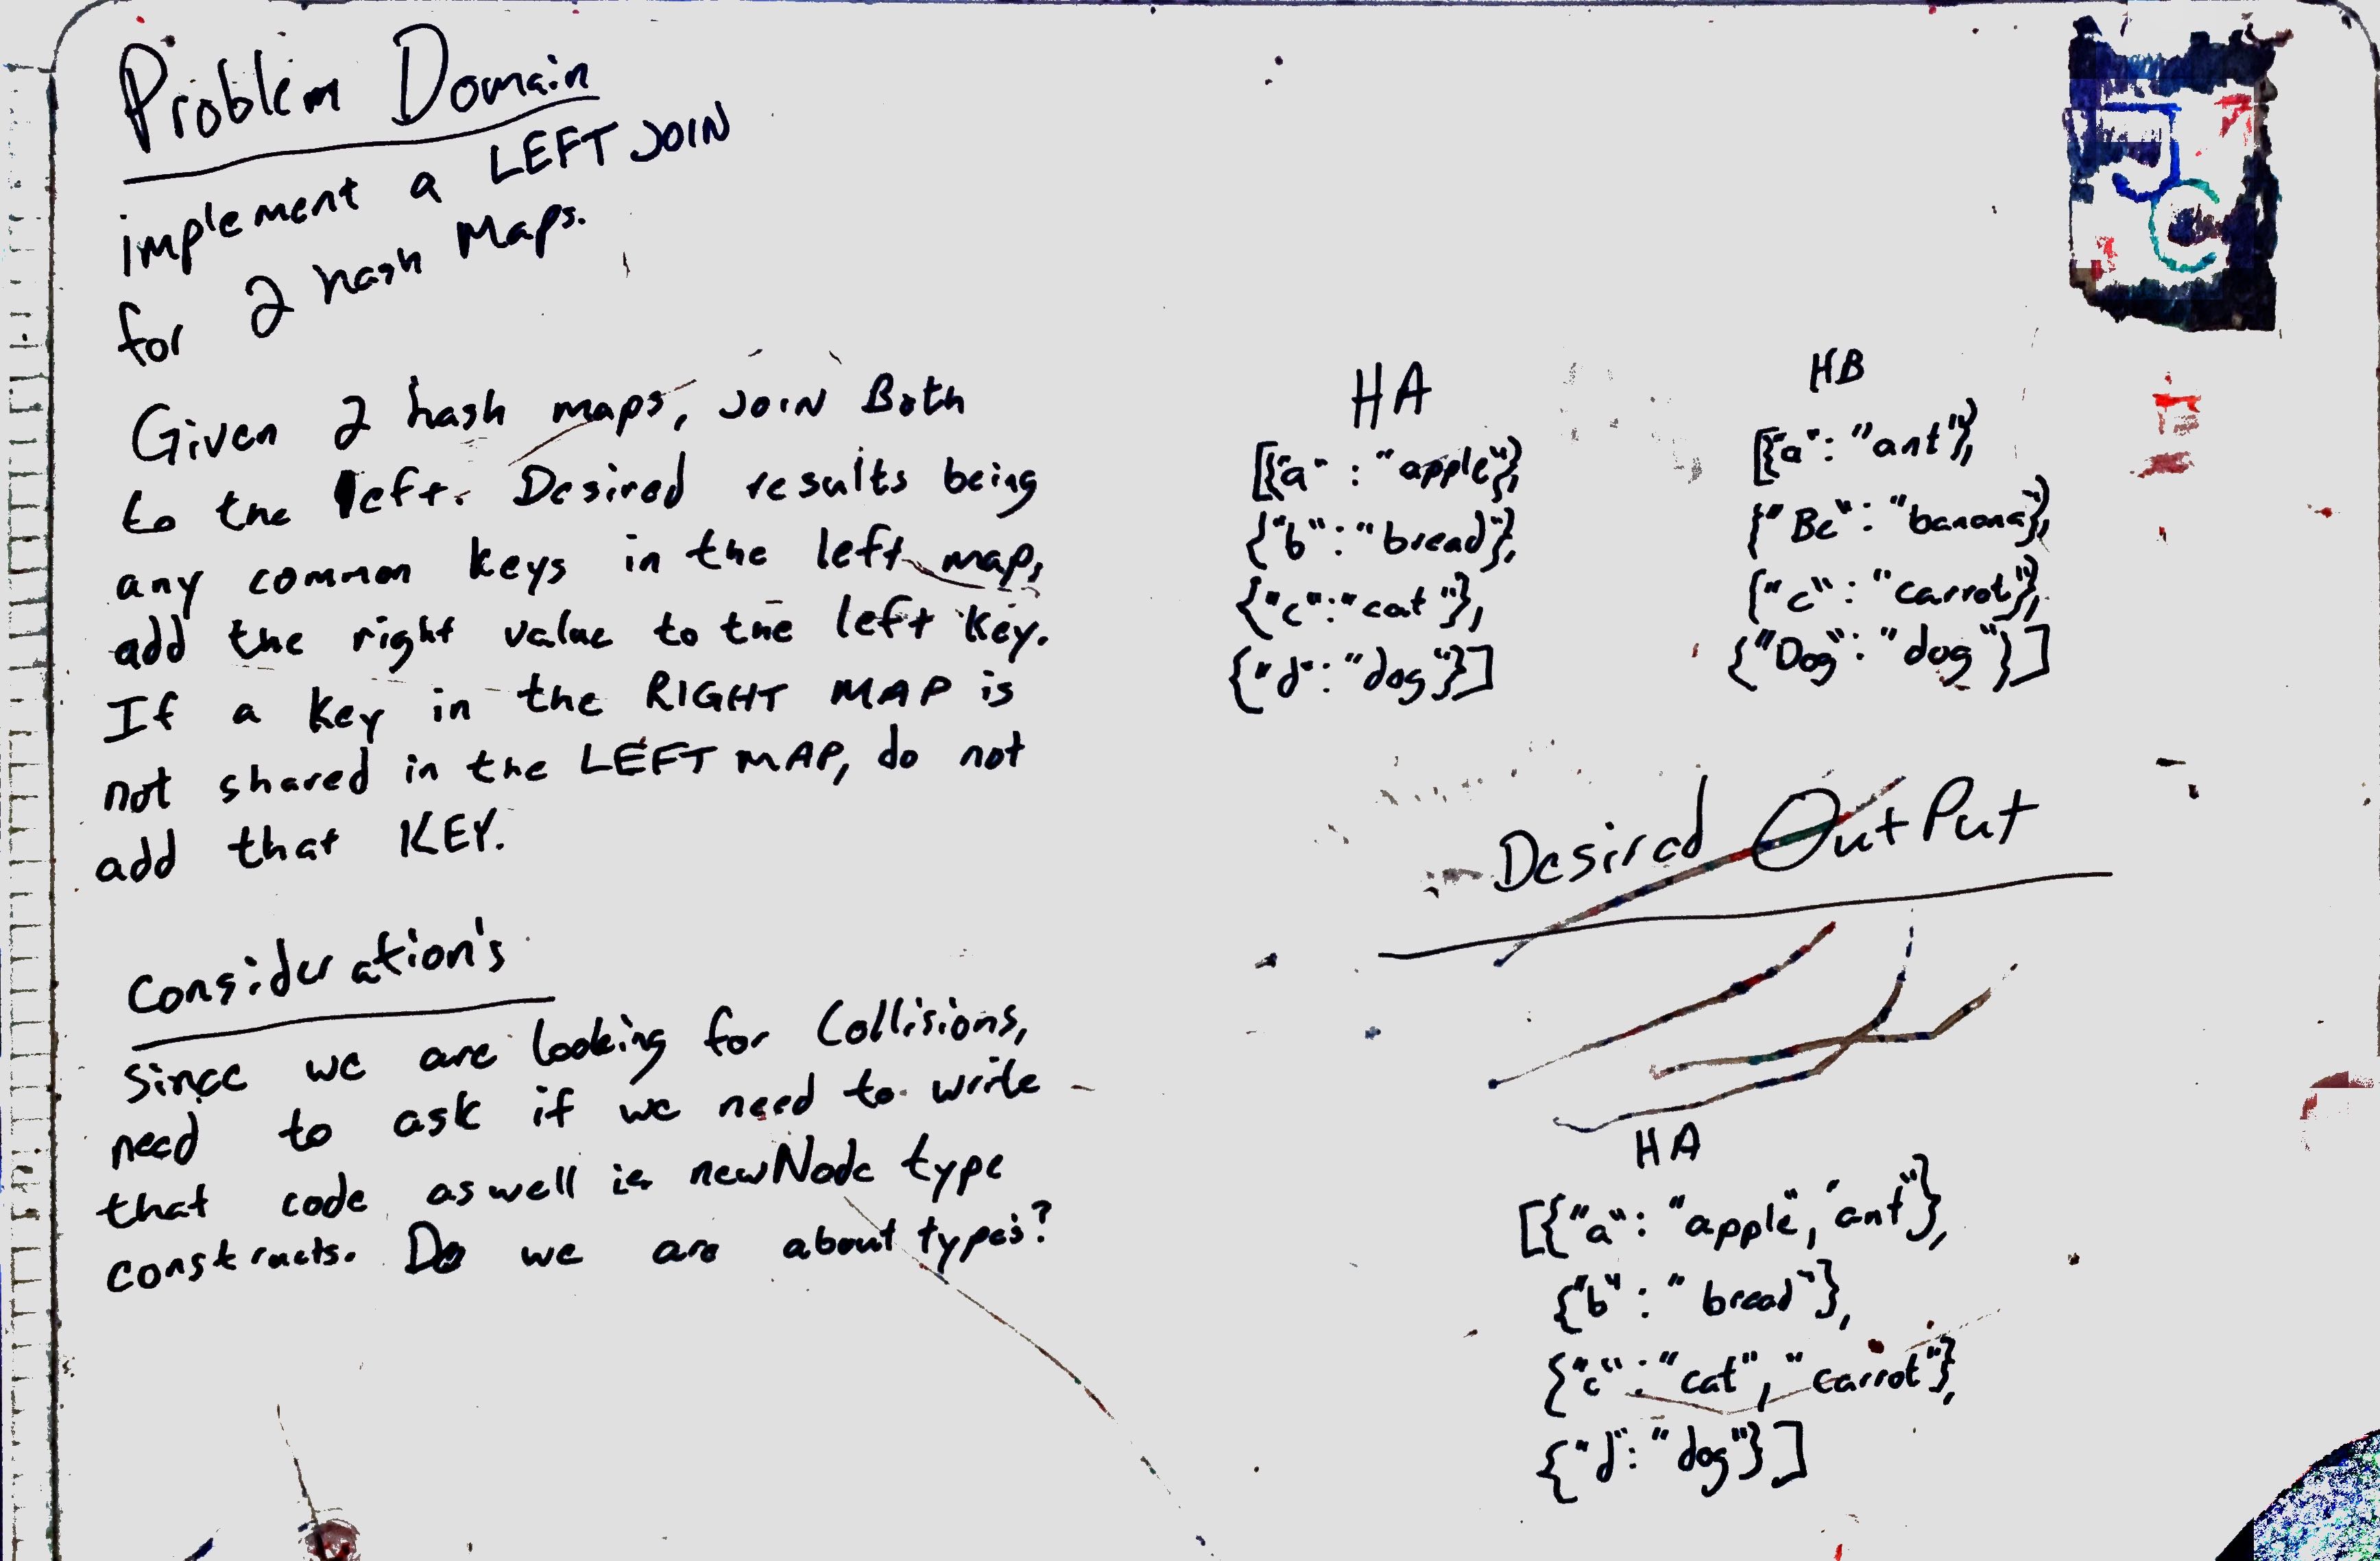 Problem Domain
implement a LEFT JOIN
for 2 hash Maps.
Given 2 hash maps, JOIN Both
to the left. Desired results being
any common keys in the left map,
add the right value to the left key.
If a key in the RIGHT MAP is
not shared in the LEFT MAP, do not
add that KEY.
Consideration's
since we are looking for Collisions,
need to ask if we need to write
that code as well ie newNode type
constructs. Do we are about types?
HA
[{"a" : "apple"},
{"b" : "bread"},
{"c" : "cat"},
{"d" : "dog"}]
HB
[{"a" : "ant"},
{"Bc" : "banana},
{"c" : "carrot"},
{"Dog" : "dog"}]
Desired OutPut
HA
[{"a" : "apple", "ant"},
{"b" : "bread"},
{"c" : "cat", "carrot"},
{"d" : "dog"}]
JC